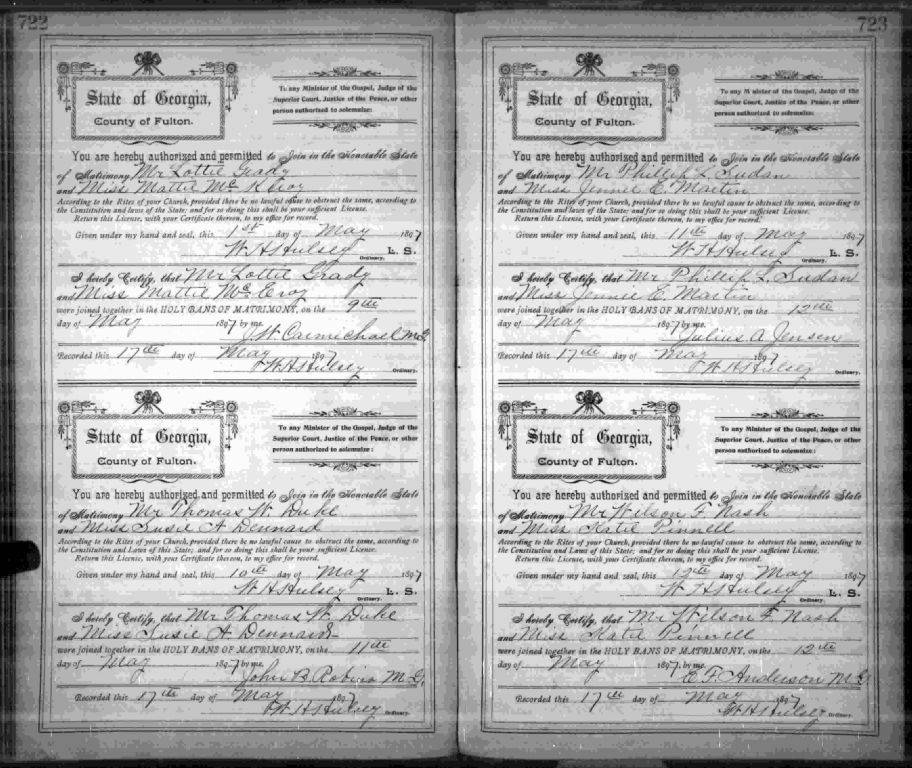 722
State of Georgia,
County of Fulton.
To any Minister of the Gospel, Judge of the
Superior Court, Justice of the Peace, or other
person authorized to solemnize:
You are hereby authorized and permitted to Join in the Honorable State
of Matrimony Mr Lottie Grady
and Miss Mattie Mc
According to the Rites of your Church, provided there be no lawful cause to obstruct the same, according to
the Constitution and laws of the State; and for so doing this shall be your sufficient License.
Return this License, with your Certificate thereon, to my office for record.
Given under my hand and seal, this 1st day of May 1897
W. H. Hulsey L. S.
Ordinary.
I hereby Certify, that Mr Lottie Grady
and Miss Mattie Mc Eroy
were joined together in the HOLY BANS OF MATRIMONY, on the 9th
day of May 1897 by me.
J. W. Carmichael M.G.
Recorded this 17th day of May 1897
W. H. Hulsey
Ordinary.
State of Georgia,
County of Fulton.
To any Minister of the Gospel, Judge of the
Superior Court, Justice of the Peace, or other
person authorized to solemnize:
You are hereby authorized and permitted to Join in the Honorable State
of Matrimony Mr Thomas W. Duke
and Miss Susie A Dennard
According to the Rites of your Church, provided there be no lawful cause to obstruct the same, according to
the Constitution and Laws of this State; and for so doing this shall be your sufficient License.
Return this License, with your Certificate thereon, to my office for record.
Given under my hand and seal, this 10th day of May 1897
W. H. Hulsey L. S.
Ordinary.
I hereby Certify, that Mr Thomas W. Duke
and Miss Susie A Dennard
were joined together in the HOLY BANS OF MATRIMONY, on the 11th
day of May 1897 by me.
John B. Robins M.G.
Recorded this 17th day of May 1897
W. H. Hulsey
Ordinary.
723
State of Georgia,
County of Fulton.
To any Minister of the Gospel, Judge of the
Superior Court, Justice of the Peace, or other
person authorized to solemnize:
You are hereby authorized and permitted to Join in the Honorable State
of Matrimony Mr Phillip L. Sudan
and Miss Jennie E. Martin
According to the Rites of your Church, provided there be no lawful cause to obstruct the same, according to
the Constitution and laws of the State; and for so doing this shall be your sufficient License.
Return this License, with your Certificate thereon, to my office for record.
Given under my hand and seal, this 11th day of May 1897
W. H. Hulsey L. S.
Ordinary.
I hereby Certify, that Mr Phillip L. Sudan
and Miss Jennie E. Martin
were joined together in the HOLY BANS OF MATRIMONY, on the 12th
day of May 1897 by me.
Julius A. Jensen
Recorded this 17th day of May 1897
W. H. Hulsey
Ordinary.
State of Georgia,
County of Fulton.
To any Minister of the Gospel, Judge of the
Superior Court, Justice of the Peace, or other
person authorized to solemnize:
You are hereby authorized and permitted to Join in the Honorable State
of Matrimony Mr Wilson F. Nash
and Miss Katie Pinnell
According to the Rites of your Church, provided there be no lawful cause to obstruct the same, according to
the Constitution and Laws of this State; and for so doing this shall be your sufficient License.
Return this License, with your Certificate thereon, to my office for record.
Given under my hand and seal, this 12th day of May 1897
W. H. Hulsey L. S.
Ordinary.
I hereby Certify, that Mr Wilson F. Nash
and Miss Katie Pinnell
were joined together in the HOLY BANS OF MATRIMONY, on the 12th
day of May 1897, by me.
E. F. Anderson M.G
Recorded this 17th day of May 1897
W. H. Hulsey
Ordinary.